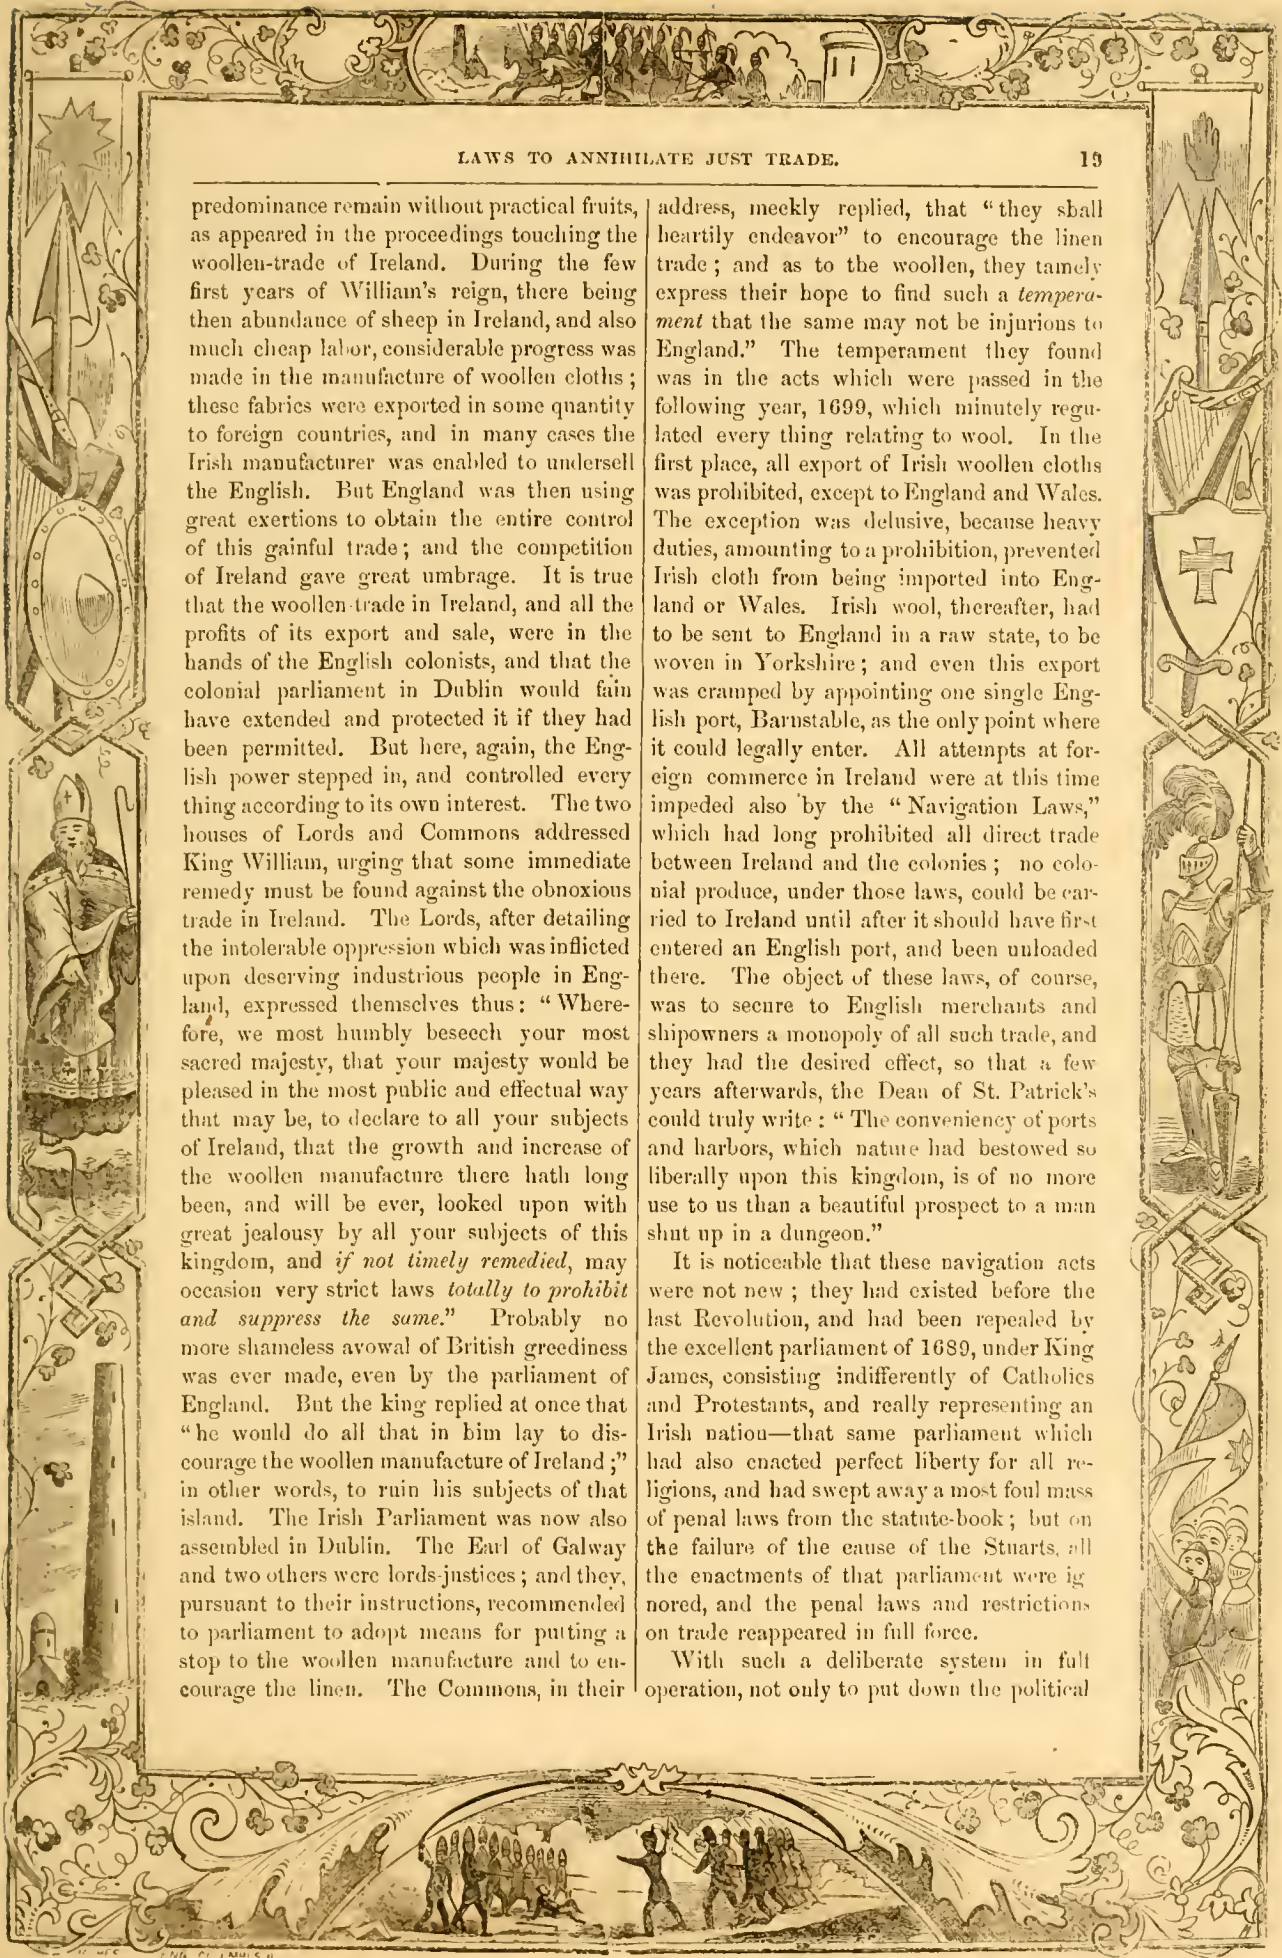 LAWS TO ANNIHILATE JUST TRADE. 19
predominance remain without practical fruits,
as appeared in the proceedings touching the
woollen-trade of Ireland. During the few
first years of William's reign, there being
then abundance of sheep in Ireland, and also
much cheap labor, considerable progress was
made in the manufacture of woollen cloths;
these fabrics were exported in some quantity
to foreign countries, and in many cases the
Irish manufacturer was enabled to undersell
the English. But England was then using
great exertions to obtain the entire control
of this gainful trade; and the competition
of Ireland gave great umbrage. It is true
that the woollen-trade in Ireland, and all the
profits of its export and sale, were in the
hands of the English colonists, and that the
colonial parliament in Dublin would fain
have extended and protected it if they had
been permitted. But here, again, the Eng-
lish power stepped in, and controlled every
thing according to its own interest. The two
houses of Lords and Commons addressed
King William, urging that some immediate
remedy must be found against the obnoxious
trade in Ireland. The Lords, after detailing
the intolerable oppression which was inflicted
upon deserving industrious people in Eng-
land, expressed themselves thus: "Where-
fore, we most humbly beseech your most
sacred majesty, that your majesty would be
pleased in the most public and effectual way
that may be, to declare to all your subjects
of Ireland, that the growth and increase of
the woollen manufacture there hath long
been, and will be ever, looked upon with
great jealousy by all your subjects of this
kingdom, and if not timely remedied, may
occasion very strict laws totally to prohibit
and suppress the same." Probably no
more shameless avowal of British greediness
was ever made, even by the parliament of
England. But the king replied at once that
"he would do all that in him lay to dis-
courage the woollen manufacture of Ireland;"
in other words, to ruin his subjects of that
island. The Irish Parliament was now also
assembled in Dublin. The Earl of Galway
and two others were lords-justices; and they,
pursuant to their instructions, recommended
to parliament to adopt means for putting a
stop to the woollen manufacture and to en-
courage the linen. The Commons, in their
address, meekly replied, that "they shall
heartily endeavor" to encourage the linen
trade; and as to the woollen, they tamely
express their hope to find such a tempera-
ment that the same may not be injurious to
England." The temperament they found
was in the acts which were passed in the
following year, 1699, which minutely regu-
lated every thing relating to wool. In the
first place, all export of Irish woollen cloths
was prohibited, except to England and Wales.
The exception was delusive, because heavy
duties, amounting to a prohibition, prevented
Irish cloth from being imported into Eng-
land or Wales. Irish wool, thereafter, had
to be sent to England in a raw state, to be
woven in Yorkshire; and even this export
was cramped by appointing one single Eng-
lish port, Barnstable, as the only point where
it could legally enter. All attempts at for-
eign commerce in Ireland were at this time
impeded also by the "Navigation Laws,"
which had long prohibited all direct trade
between Ireland and the colonies; no colo-
nial produce, under those laws, could be car-
ried to Ireland until after it should have first
entered an English port, and been unloaded
there. The object of these laws, of course,
was to secure to English merchants and
shipowners a monopoly of all such trade, and
they had the desired effect, so that a few
years afterwards, the Dean of St. Patrick's
could truly write: "The conveniency of ports
and harbors, which nature had bestowed so
liberally upon this kingdom, is of no more
use to us than a beautiful prospect to a man
shut up in a dungeon."
It is noticeable that these navigation acts
were not new; they had existed before the
last Revolution, and had been repealed by
the excellent parliament of 1689, under King
James, consisting indifferently of Catholics
and Protestants, and really representing an
Irish nation—that same parliament which
had also enacted perfect liberty for all re-
ligions, and had swept away a most foul mass
of penal laws from the statute-book; but on
the failure of the cause of the Stuarts, all
the enactments of that parliament were ig
nored, and the penal laws and restrictions
on trade reappeared in full force.
With such a deliberate system in full
operation, not only to put down the political